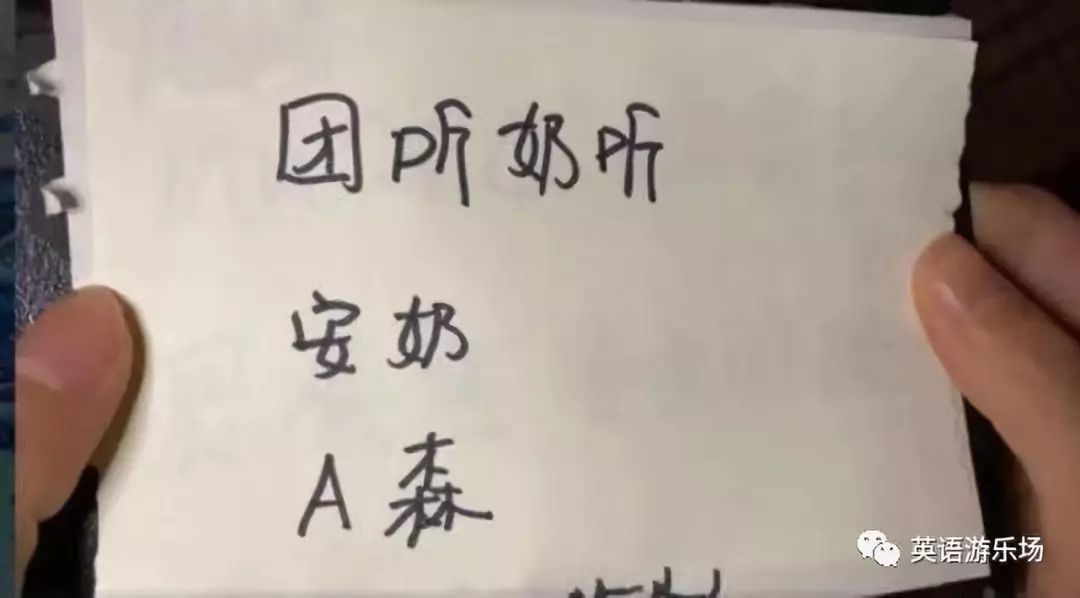 团听奶听
安奶
A森
英语游乐场